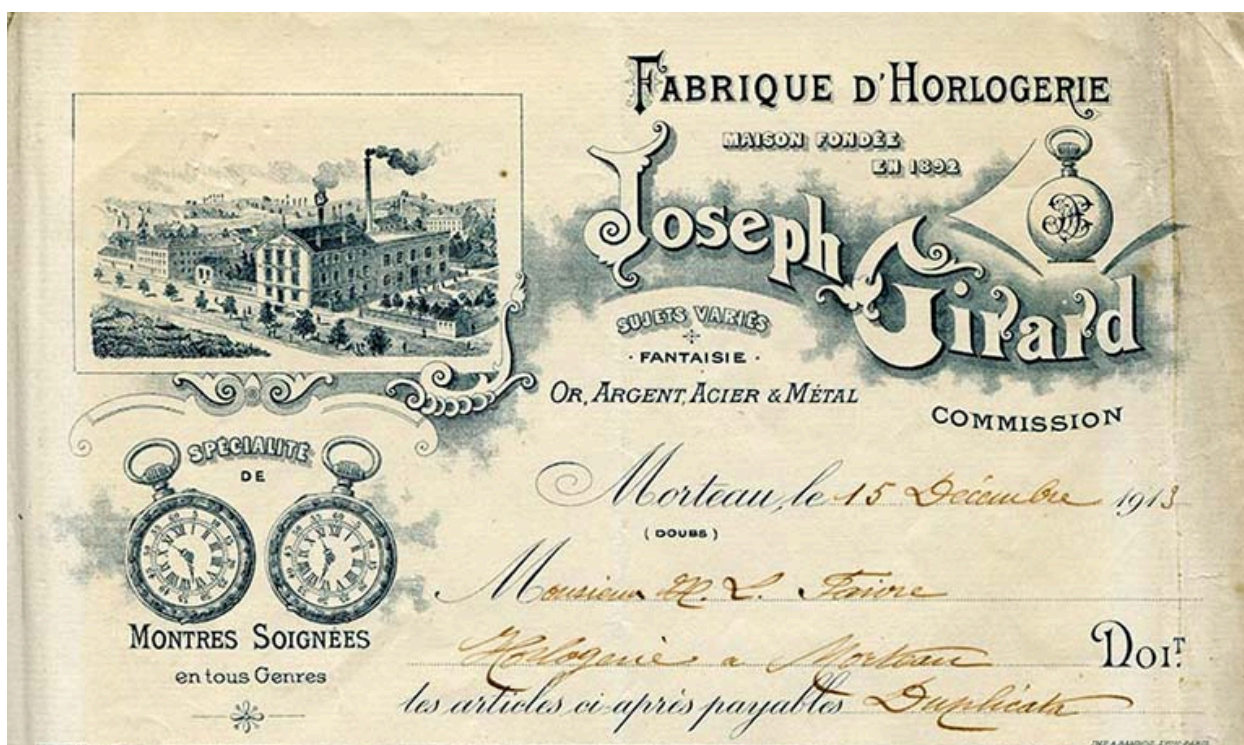 FABRIQUE D'HORLOGERIE
MAISON FONDÉE
EN 1892
Joseph
Girard
SUJETS VARIÉS
· FANTAISIE ·
OR, ARGENT, ACIER & MÉTAL
COMMISSION
SPÉCIALITÉ
DE
MONTRES SOIGNÉES
en tous Genres
Morteau, le 15 Décembre 1913
(DOUBS)
Monsieur L. Faivre
Horlogerie a Morteau DOIT
les articles ci-après payables Duplicata